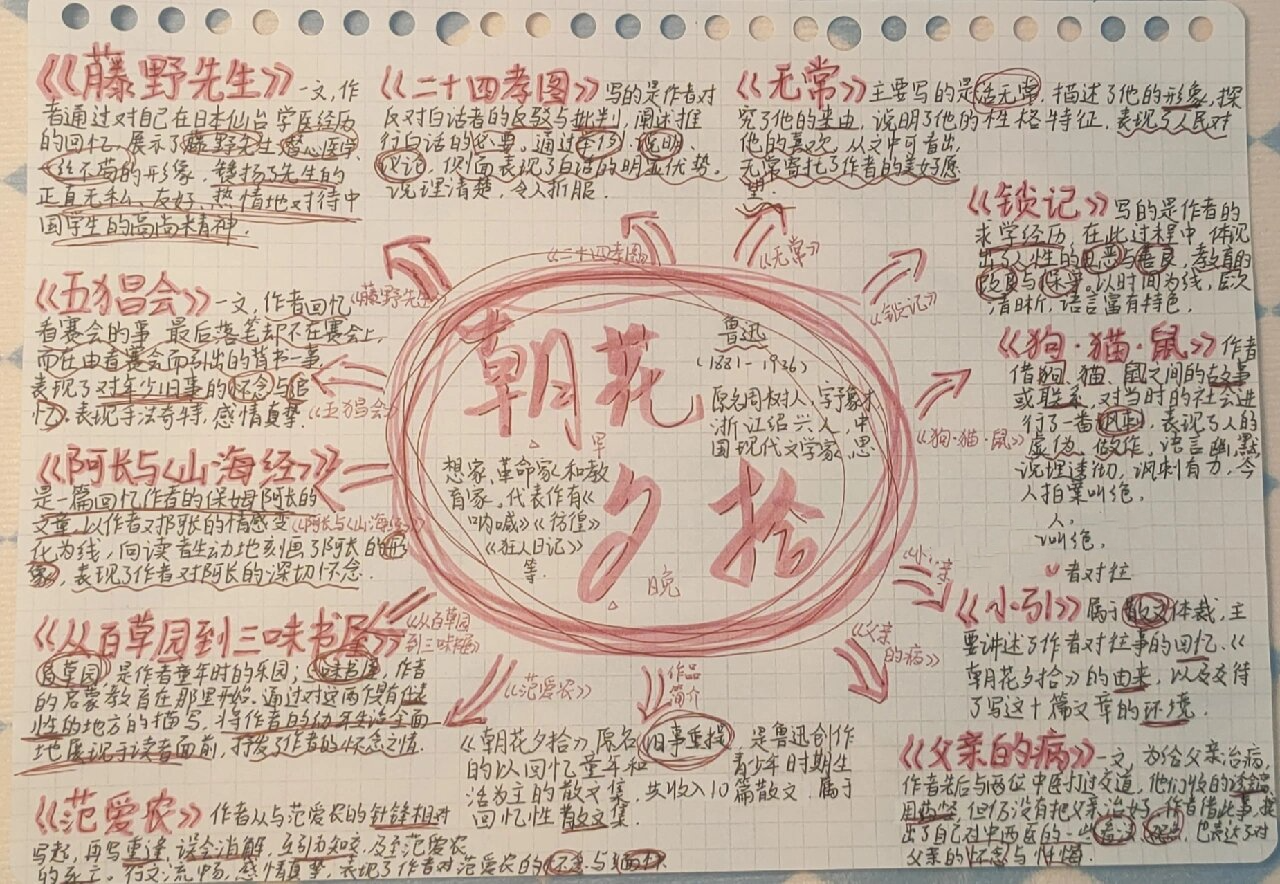 《藤野先生》一文,作
者通过对自己在日本仙台学医经历
的回忆,展示了藤野先生
一丝不苟的形象,赞扬了先生的
正直无私、友好、热情地对待中
国学生的高尚精神.
《二十四孝图》写的是作者对
反对白话者的反驳与批判,阐述推
行白话的必要。通过举例、说明、
议论,侧面表现了白话的明显优势。
说理清楚,令人折服.
《无常》主要写的是活无常,描述了他的形象,探
究了他的来由,说明了他的性格特征,表现了人民对
他的喜欢,从文中可看出,
无常寄托了作者的美好愿
望.
《锁记》写的是作者的
求学经历 在此过程中 体现
出了人性的 与善良,教育的
与保守。以时间为线,层次
清晰,语言富有特色.
《五猖会》一文,作者回忆
看赛会的事 最后落笔却不在赛会上,
而在由看赛会而引出的背书一事
表现了对年少旧事的怀念与追
忆。表现手法奇特,感情真挚.
《狗·猫·鼠》作者
借狗 猫 鼠之间的故事
或联系,对当时的社会进
行了一番讽刺,表现了人的
虚伪 做作,语言幽默
说理透彻,讽刺有力,令
人拍案叫绝,
人,
叫绝,
者对拉
《阿长与《山海经》》
是一篇回忆作者的保姆阿长的
文章,以作者对阿长的情感变
化为线,向读者生动地刻画了阿长的形
象,表现了作者对阿长的深切怀念.
《从百草园到三味书屋》
百草园 是作者童年时的乐园;三味书屋,作者
的启蒙教育在那里开始.通过对这两个具有
性的地方的描写,将作者的幼年生活全面
地展现于读者面前,抒发了作者的怀念之情.
《范爱农》作者从与范爱农的针锋相对
写起,再写重逢,误会消解,互引为知交,及至范爱农
的死亡。行文流畅,感情真挚,表现了作者对范爱农的怀念与
《小引》属于散文体裁,主
要讲述了作者对拉事的回忆.《
朝花夕拾》的由来,以及交待
了写这十篇文章的环境.
《父亲的病》一文,为给父亲治病,
作者先后与两位中医打过交道,他们收的诊金高,
用药 ,但仍没有把父亲治好,作者借此事,提
出了自己对中西医的一些看法, 也表达了对
父亲的怀念与 .
《藤野先生
《二十四孝图
《无常》
《锁记》
《五猖会》
《狗·猫·鼠》
《阿长与《山海经》
《从百草园
到三味书屋》
《范爱农》
作品
简介
《父亲
的病》
《小
朝花
早
夕拾
晚
鲁迅
(1881-1936)
原名周树人,字豫才
浙江绍兴人,中
国现代文学家,思
想家,革命家和教
育家。代表作有《
呐喊》《彷徨》
《狂人日记》
等.
《朝花夕拾》原名旧事重提 是鲁迅创作
的以回忆童年和青少年时期生
活为主的散文集,共收入10篇散文,属于
回忆性散文集.